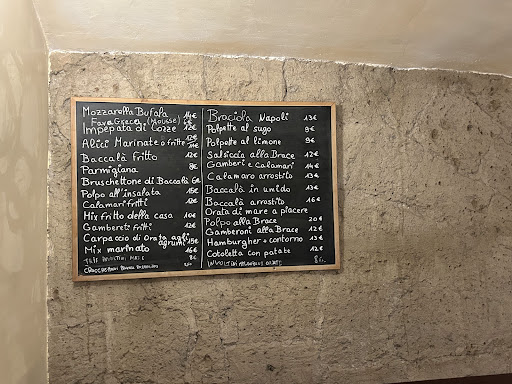 Mozzarella Bufala 14€
Fava Greca (Mousse)
Impepata di Cozze 12€
Alici Marinate o fritte
Baccalà fritto 12€
Parmigiana 8€
Bruschettone di Baccalà 6€
Polpo all'insalata 15€
Calamari fritti 12€
Mix fritto della casa 10€
Gamberetti fritti 12€
Carpaccio di Orata agli agrumi 15€
Mix marinato 16€
Braciola Napoli 13€
Polpette al sugo 9€
Polpette al limone 9€
Salsiccia alla Brace 12€
Gamberi e Calamari 14€
Calamaro arrostito 13€
Baccalà in umido 13€
Baccalà arrostito 16€
Orata di mare a piacere
Polpo alla Brace 20€
Gamberoni alla Brace 12€
Hamburgher + contorno 13€
Cotoletta con patate 12€